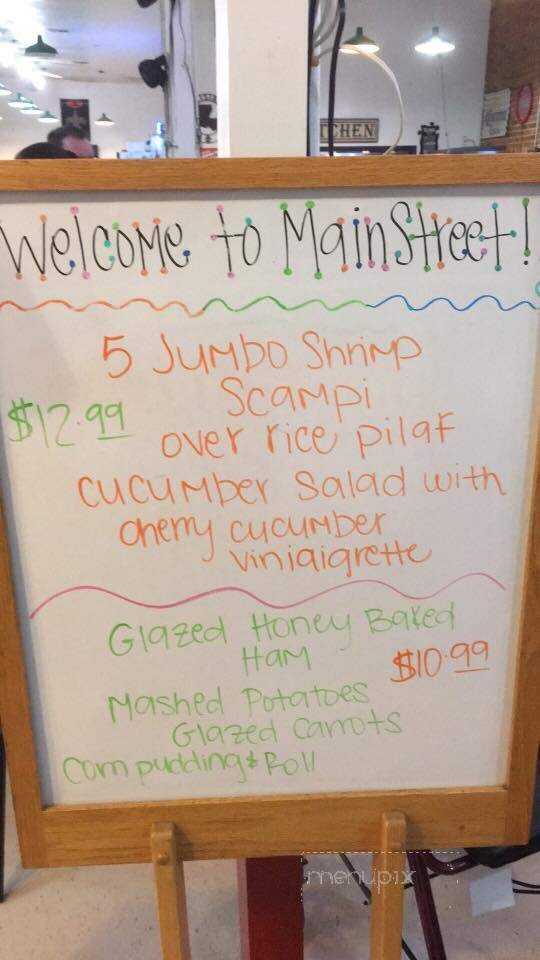 TCHEN
Welcome to MainStreet!
5 Jumbo Shrimp
Scampi
$12.99
over rice pilaf
cucumber salad with
cherry cucumber
viniaigrette
Glazed Honey Baked
Ham
$10.99
Mashed Potatoes
Glazed Carrots
Corn pudding & Roll
menupix